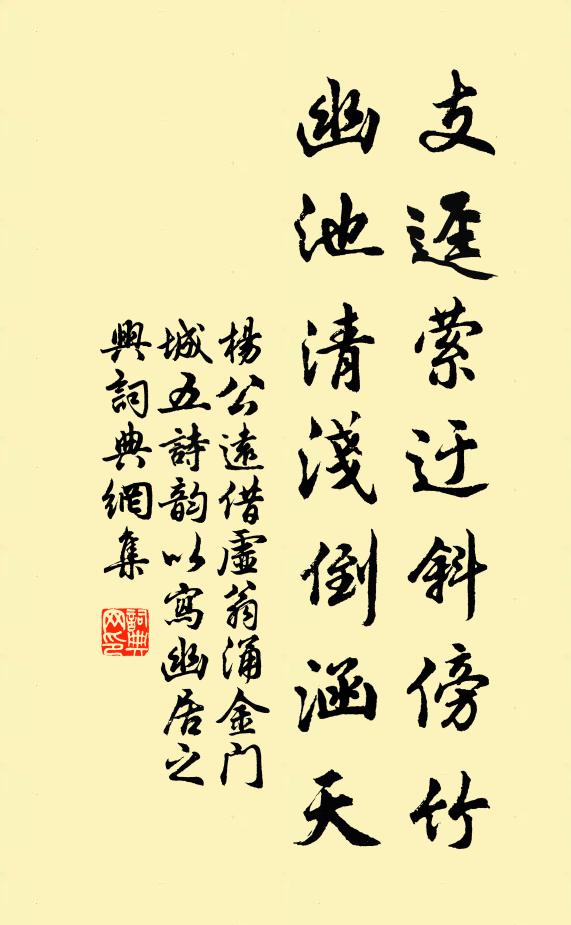 支遳萦迂斜傍竹
幽池清淺倒涵天
楊公遠借虛翁涌金門
城五詩韵以寫幽居之
興詞典網集
詞典網印